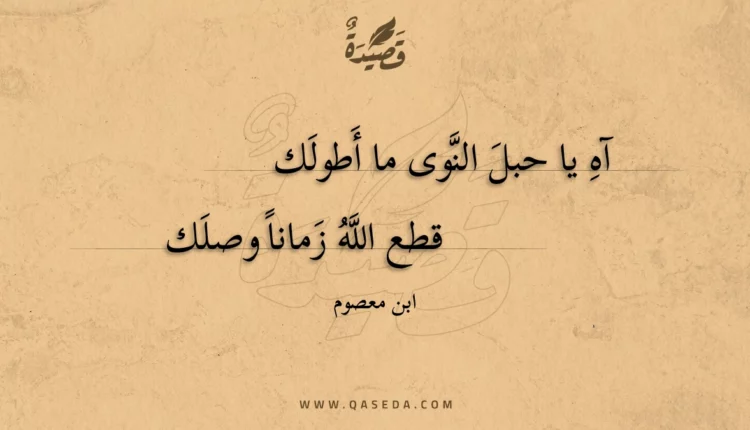 قَصِيْدَةٌ
آهِ يا حبلَ النَّوى ما أَطولَك
قطع اللَّهُ زَماناً وصلَك
ابن معصوم
WWW.QASEDA.COM